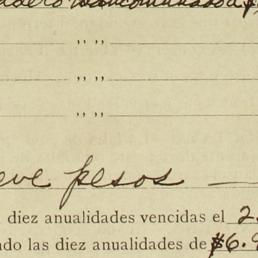 ,, ,,
,, ,,
,, ,,
eve pesos
diez anualidades vencidas el 2
ndo las diez anualidades de $6.9